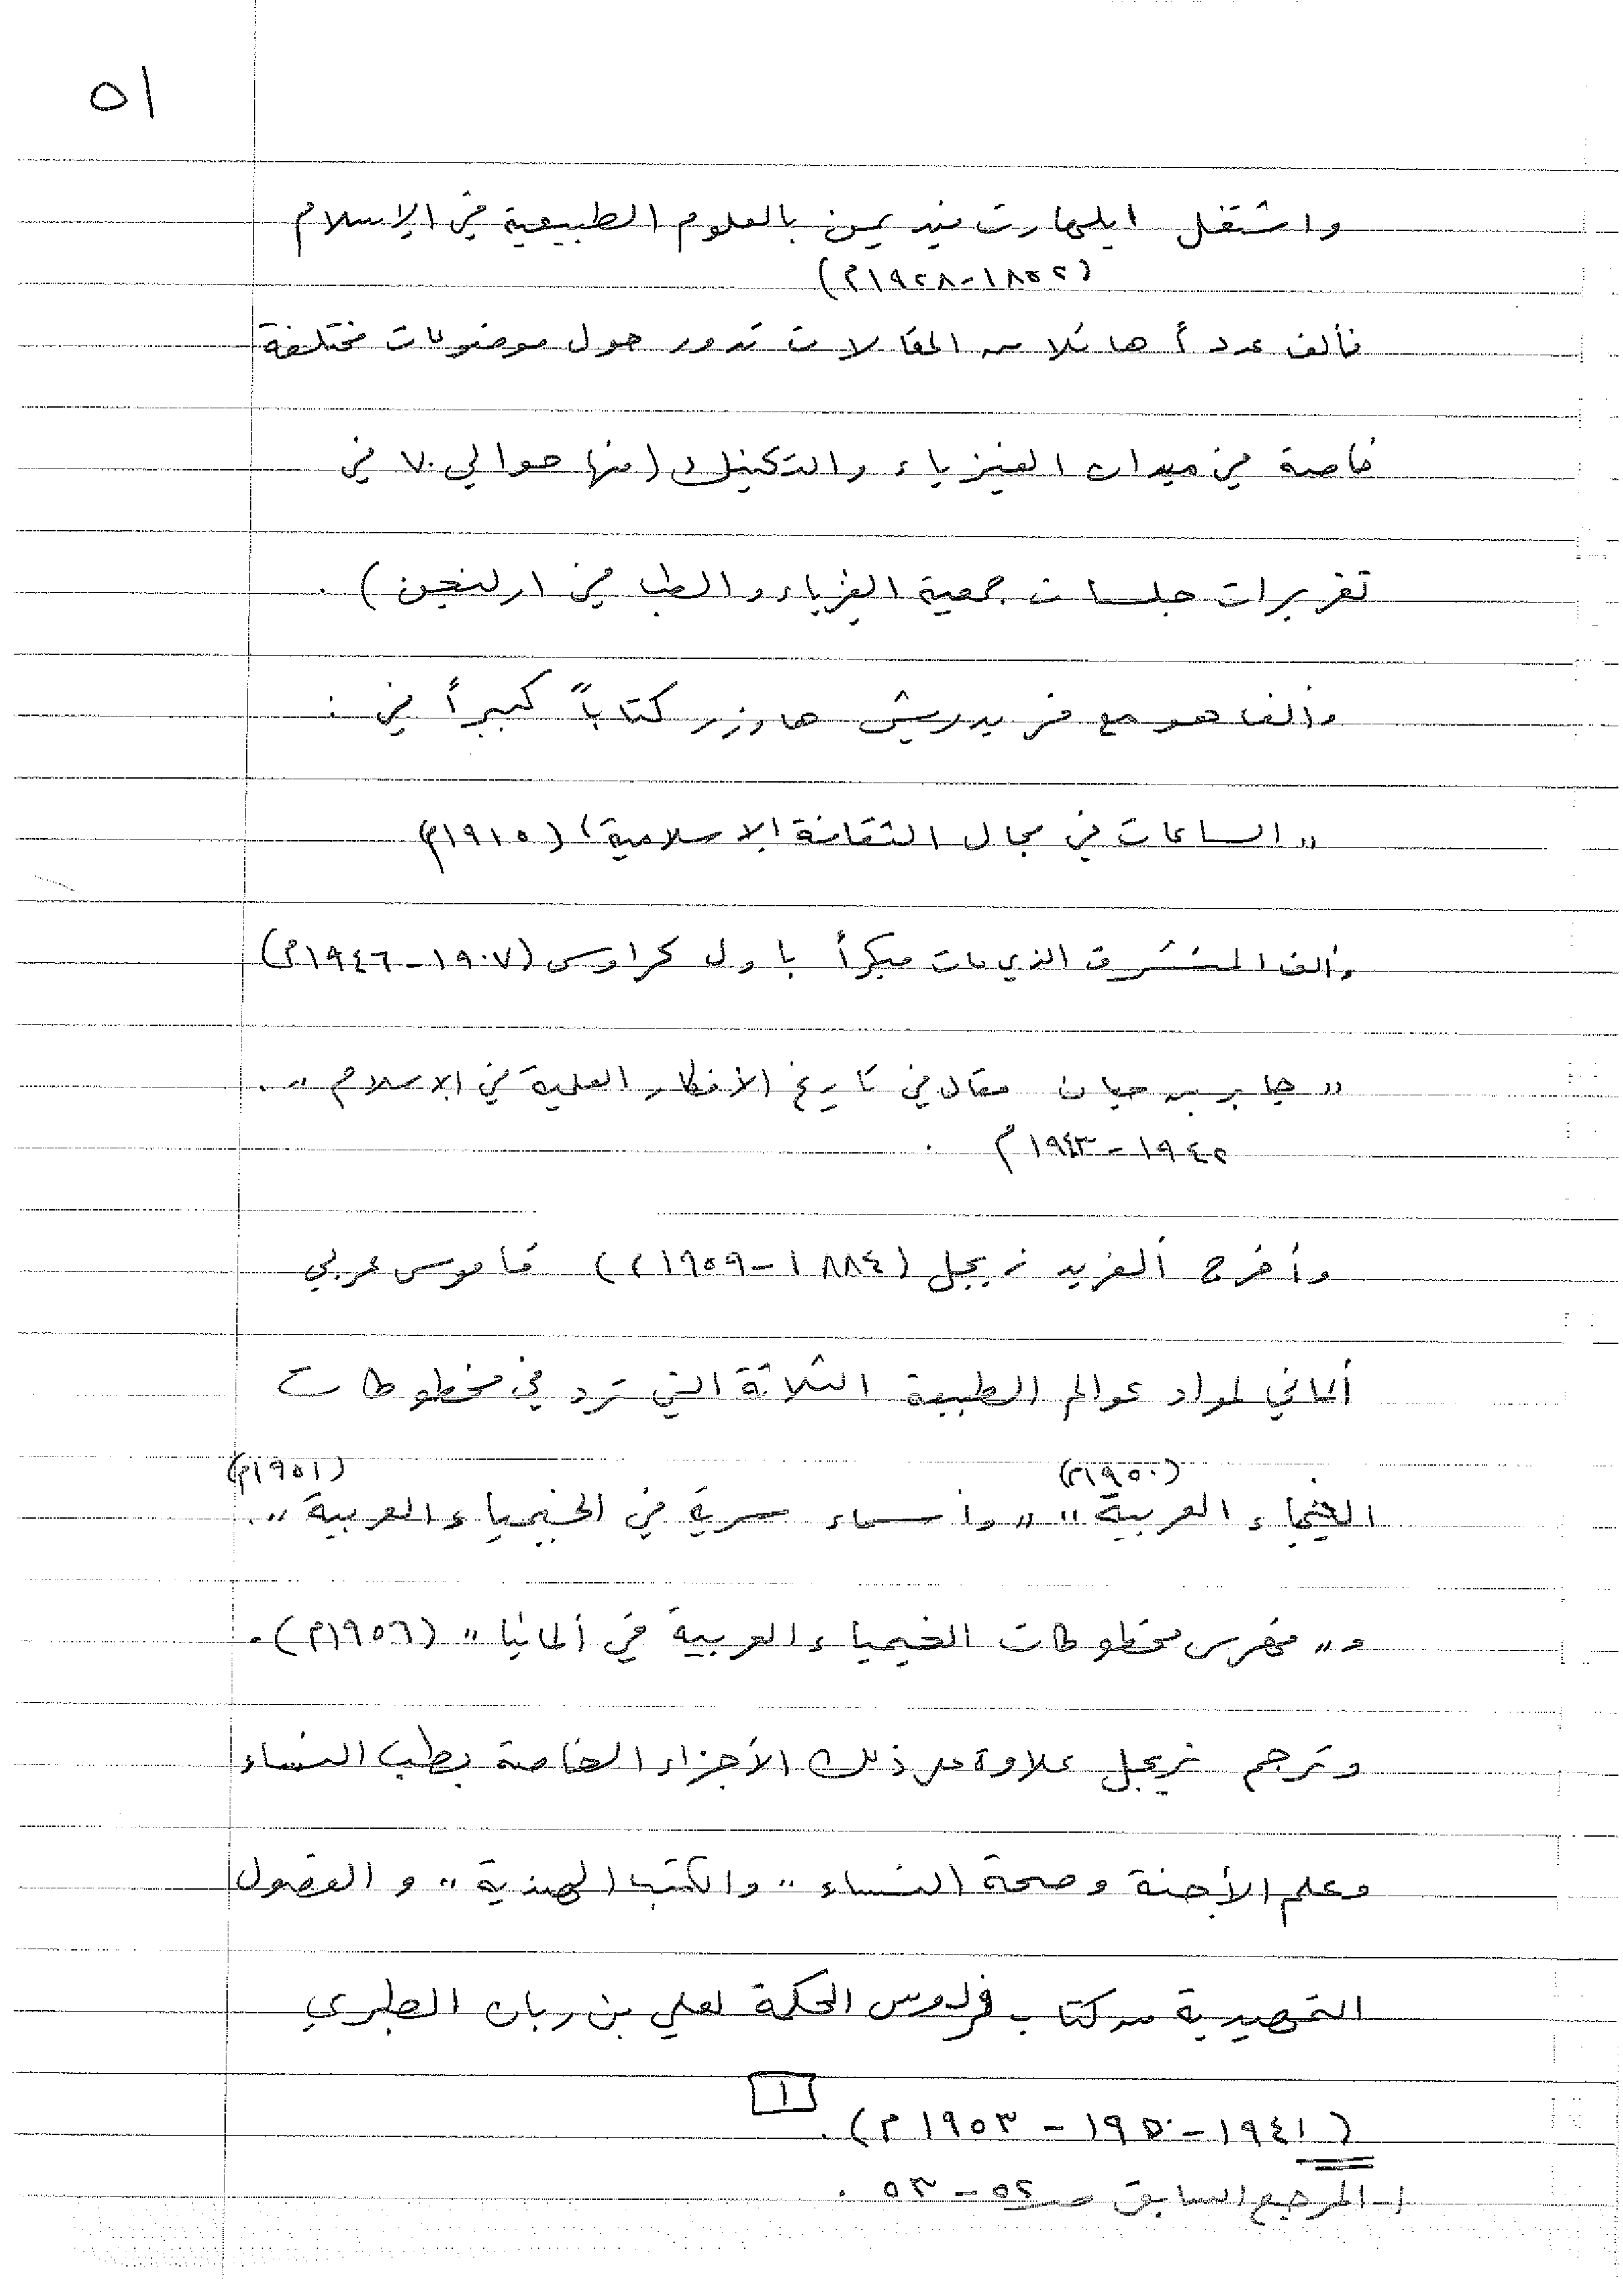 ٥١
واشتغل ايلهارت فيديمن بالعلوم الطبيعية في الإسلام
(١٨٥٢-١٩٢٨م)
فألف عدداً هائلا من المقالات تدور حول موضوعات مختلفة
خاصة في ميدان الفيزياء والتكنيك (منها حوالي ٧٠ في
تقريرات جلسات جمعية الفيزياء والطب في ارلنجن) .
وألف هو مع فريدريش هاوزر كتاباً كبيراً في :
,, الساعات في مجال الثقافة الإسلامية، (١٩١٥م)
وألف المستشرق الذي مات مبكراً باول كراوس (١٩٠٧-١٩٤٦م)
,, جابر بن حيان مقال في تاريخ الأفكار العلمية في الإسلام ,, .
١٩٤٢-١٩٤٣م .
وأخرج ألفريد زيجل (١٨٨٤-١٩٥٩م) قاموس عربي
ألماني لمواد عوالم الطبيعة الثلاثة التي ترد في مخطوطات
(١٩٥٠م) (١٩٥١م)
الخيمياء العربية ,, ,, وأسماء سرية في الخيمياء العربية ,, .
و ,, فهرس مخطوطات الخيمياء العربية في ألمانيا ,, (١٩٥٦م) .
وترجم زيجل علاوة على ذلك الأجزاء الخاصة بطب النساء
وعلم الأجنة وصحة النساء ,, والكتب الهندية ,, و الفصول
التمهيدية من كتاب فردوس الحكمة لعلي بن ربان الطبري
(١٩٤١-١٩٥٠-١٩٥٣م) . [١]
١- المرجع السابق صـ ٥٢-٥٣ .